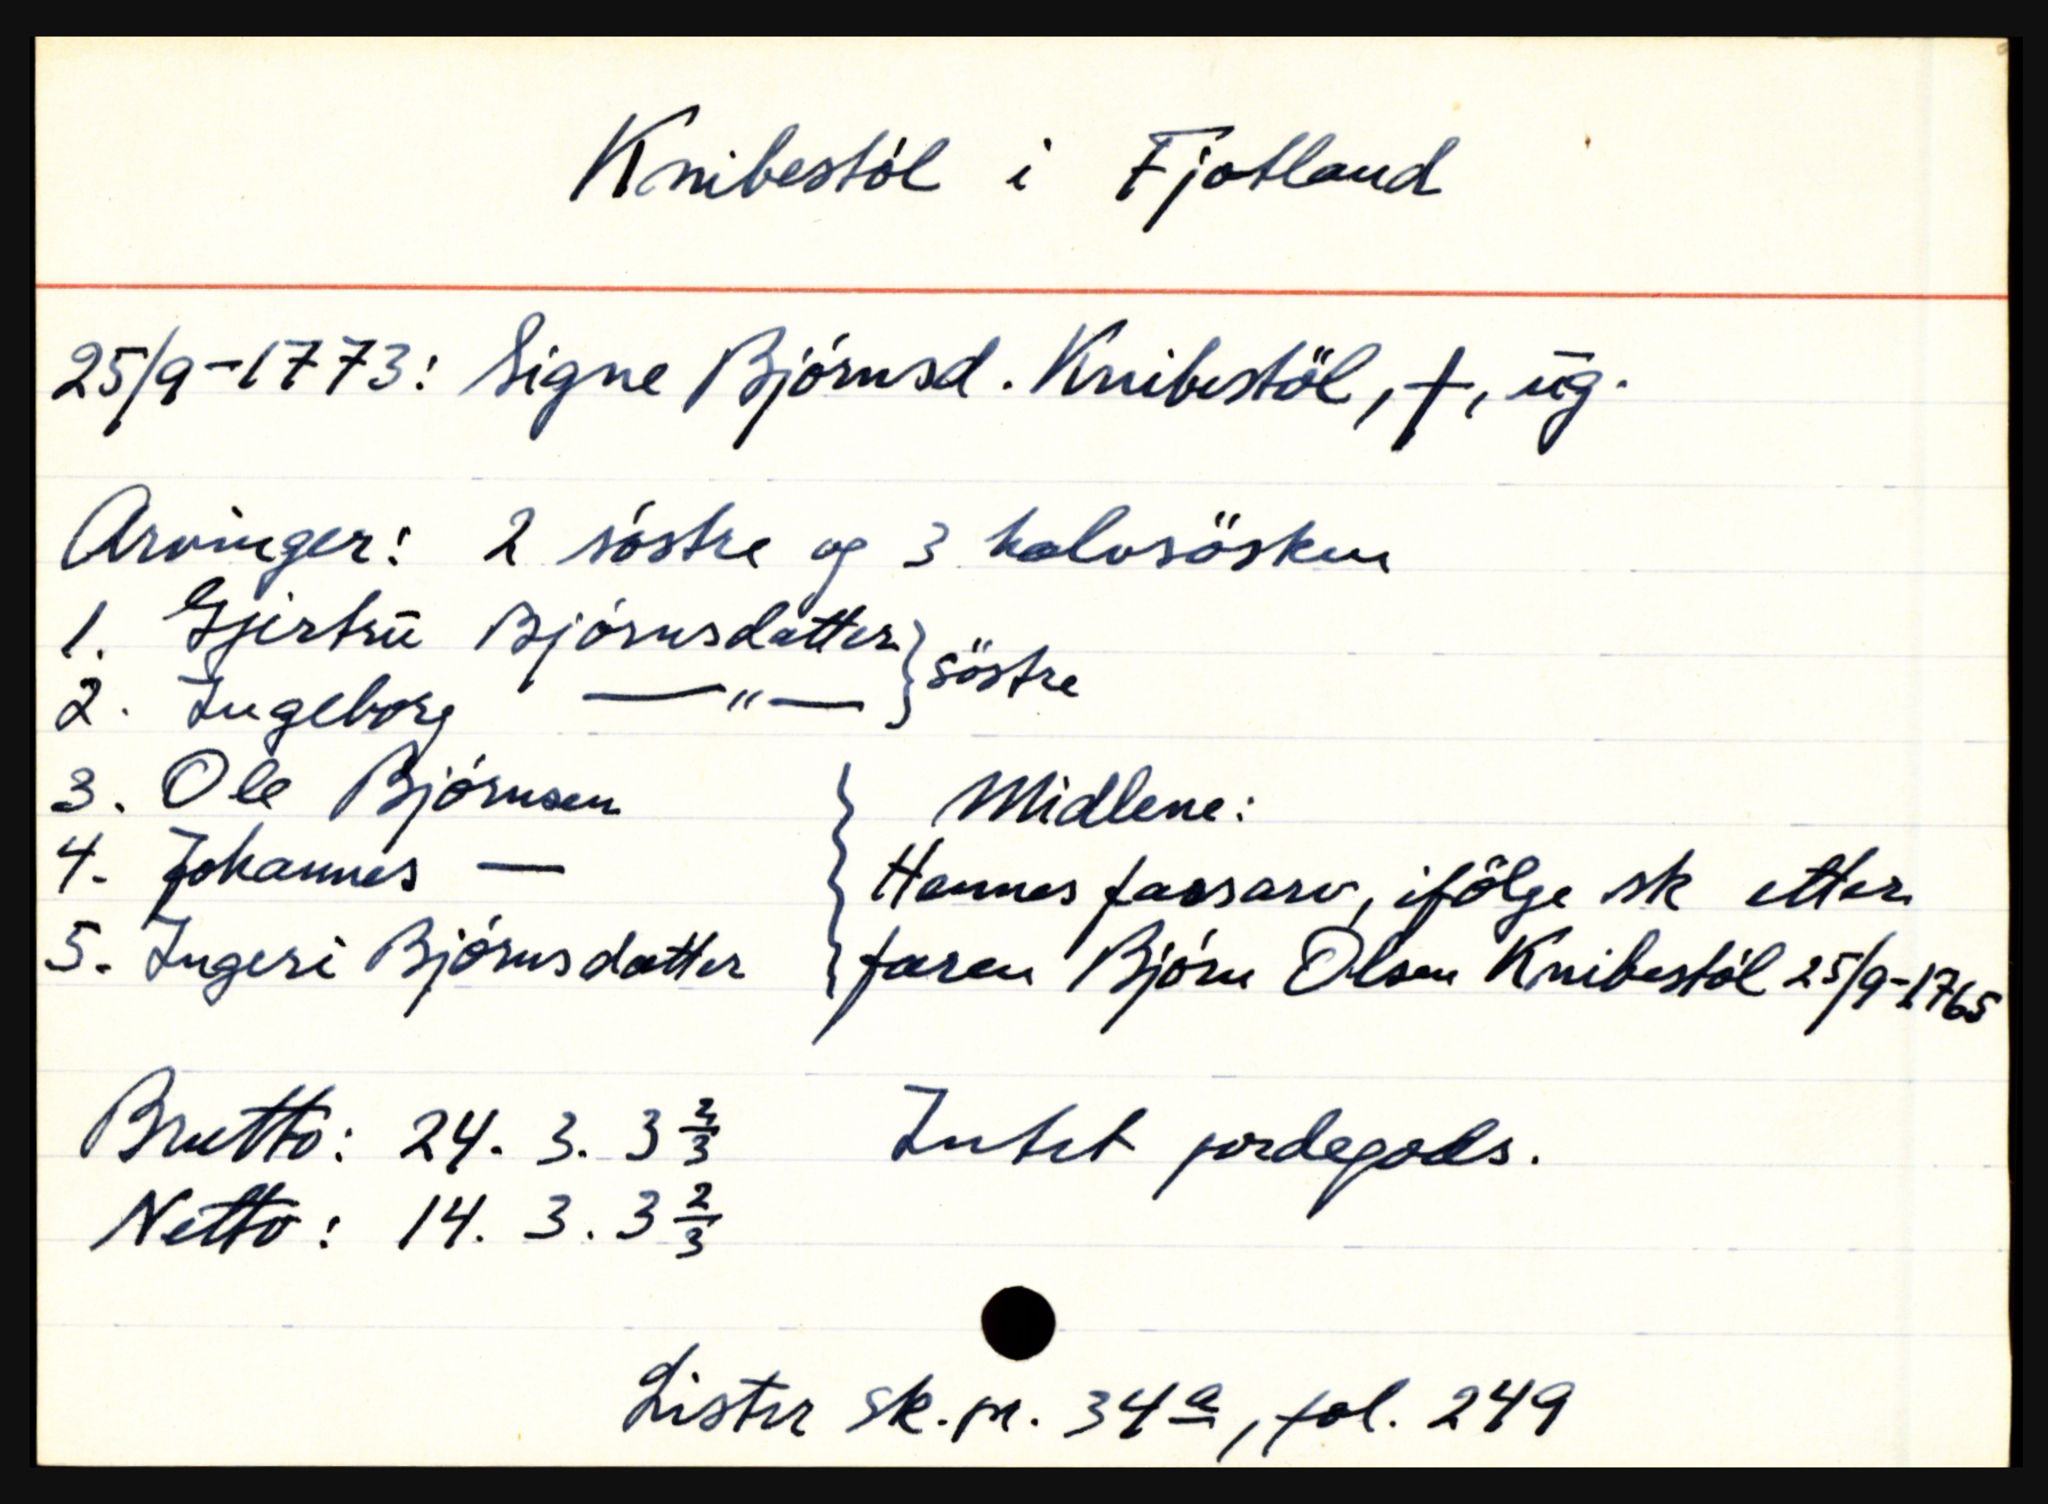 Knibestøl i Fjotland
25/9-1773: Signe Bjørnsd. Knibestöl, †, ūg.
Arvinger: 2 søstre og 3 halvsösken
1. Gjertrū Bjørnsdatter } söstre
2. Ingeborg —„—
3. Ole Bjørnsen
4. Johannes —
5. Ingeri Bjørnsdatter
Midlene:
Hennes farsarv, ifölge sk etter
faren Bjørn Olsen Knibestøl 25/9-1765
Brutto: 24. 3. 3 2/3 Intet jordegods.
Netto: 14. 3. 3 2/3
Lister sk.pr. 34a, fol. 249